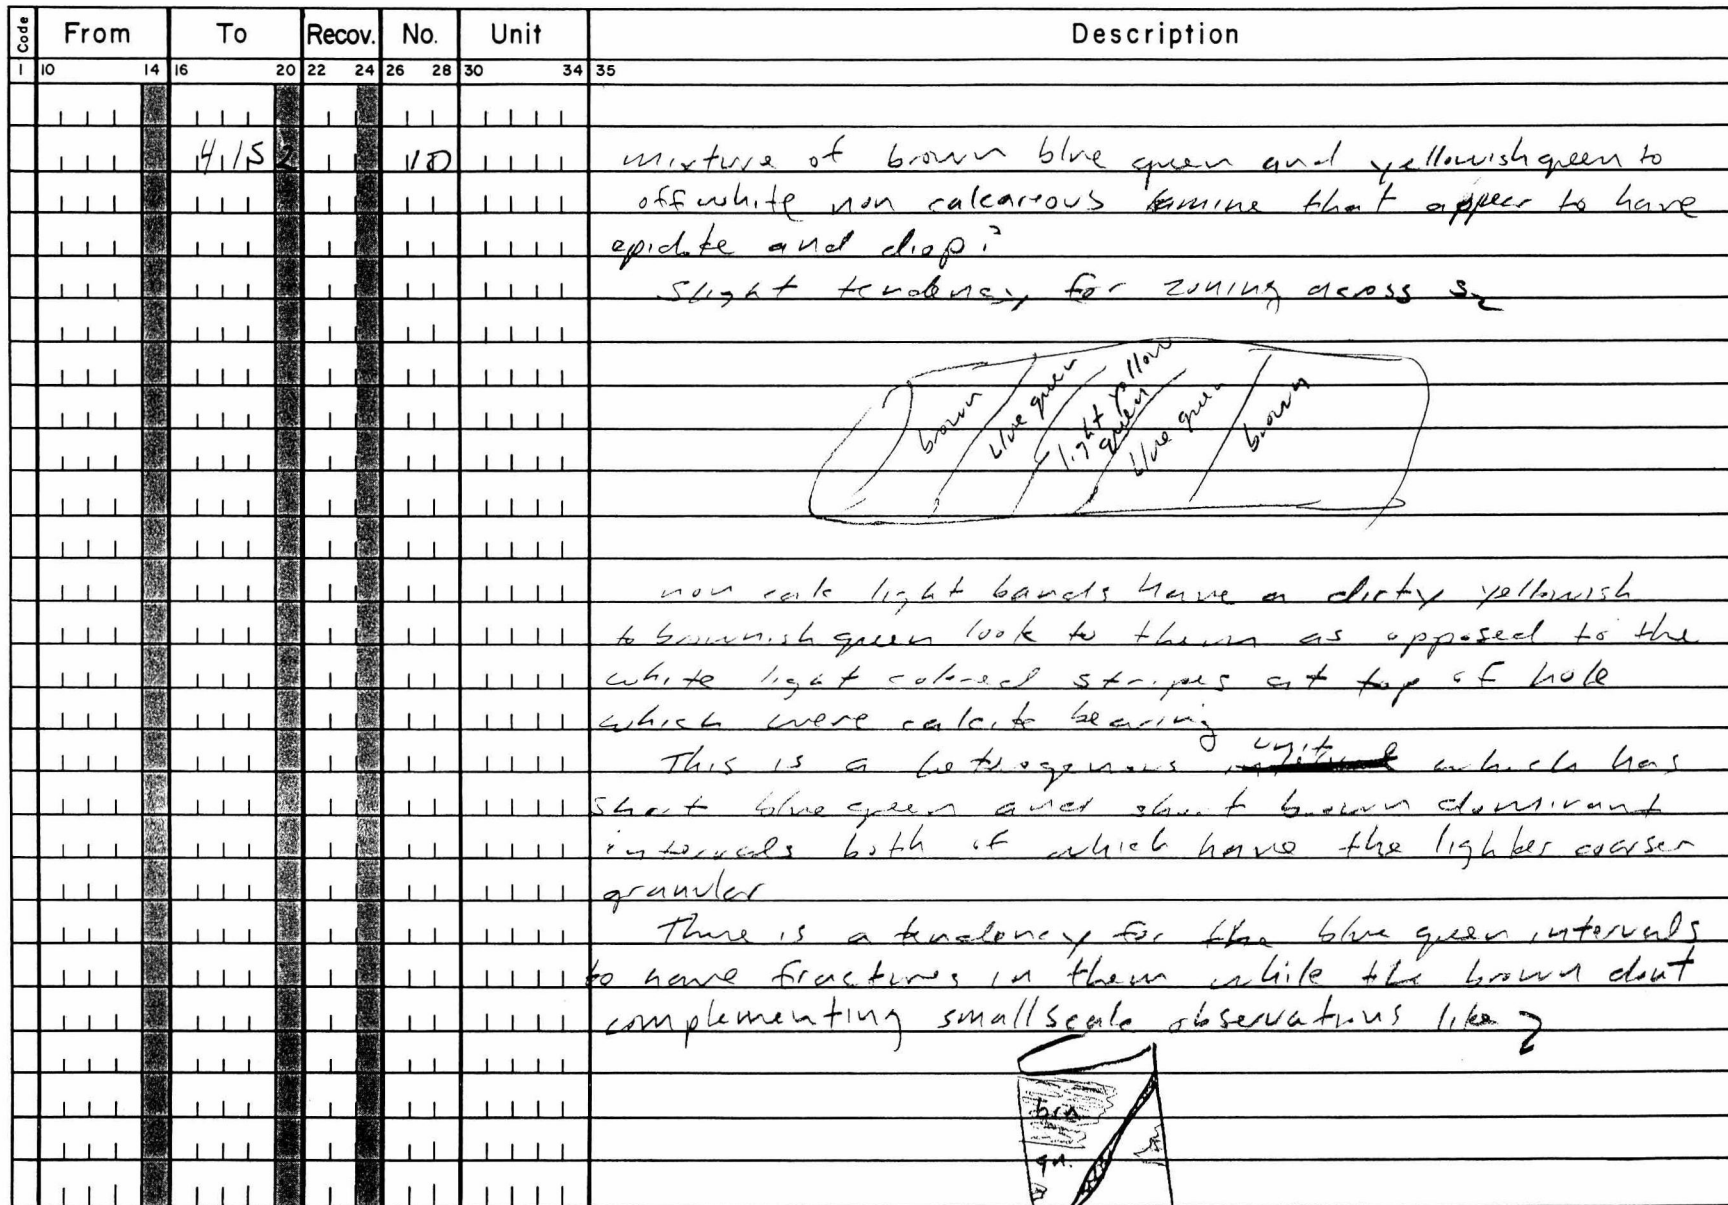 Code From To Recov. No. Unit Description
1 10 14 16 20 22 24 26 28 30 34 35
4152 10 mixture of brown blue green and yellowish green to
off white non calcareous that appear to have
epidote and diop?
Slight tendency for zoning across S2
brown blue green light yellow green blue green brown
non calc light bands have a dirty yellowish
to brownish green look to them as opposed to the
white light colored stripes at top of hole
which were calcite bearing
This is a heterogenous unit which has
short blue green and short brown dominant
intervals both of which have the lighter coarser
granular
There is a tendency for the blue green intervals
to have fractures in them while the brown dont
complementing smallscale observations like
brn.
gn.